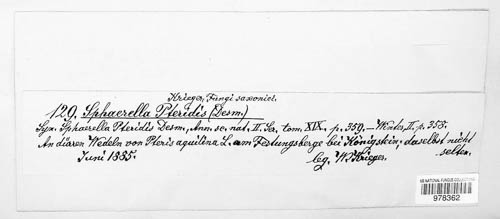 Krieger, Fungi saxonici.
129. Sphaerella Pteridis (Desm.)
Syn. Sphaerella Pteridis Desm., Ann. sc. nat. II. Ser. tom. XIX. p. 359. — Winter, II. p. 355.
An dürren Wedeln von Pteris aquilina L. am Festungsberge bei Königstein; daselbst nicht
selten.
Juni 1885. leg. W. Krieger.
US NATIONAL FUNGUS COLLECTIONS
978362